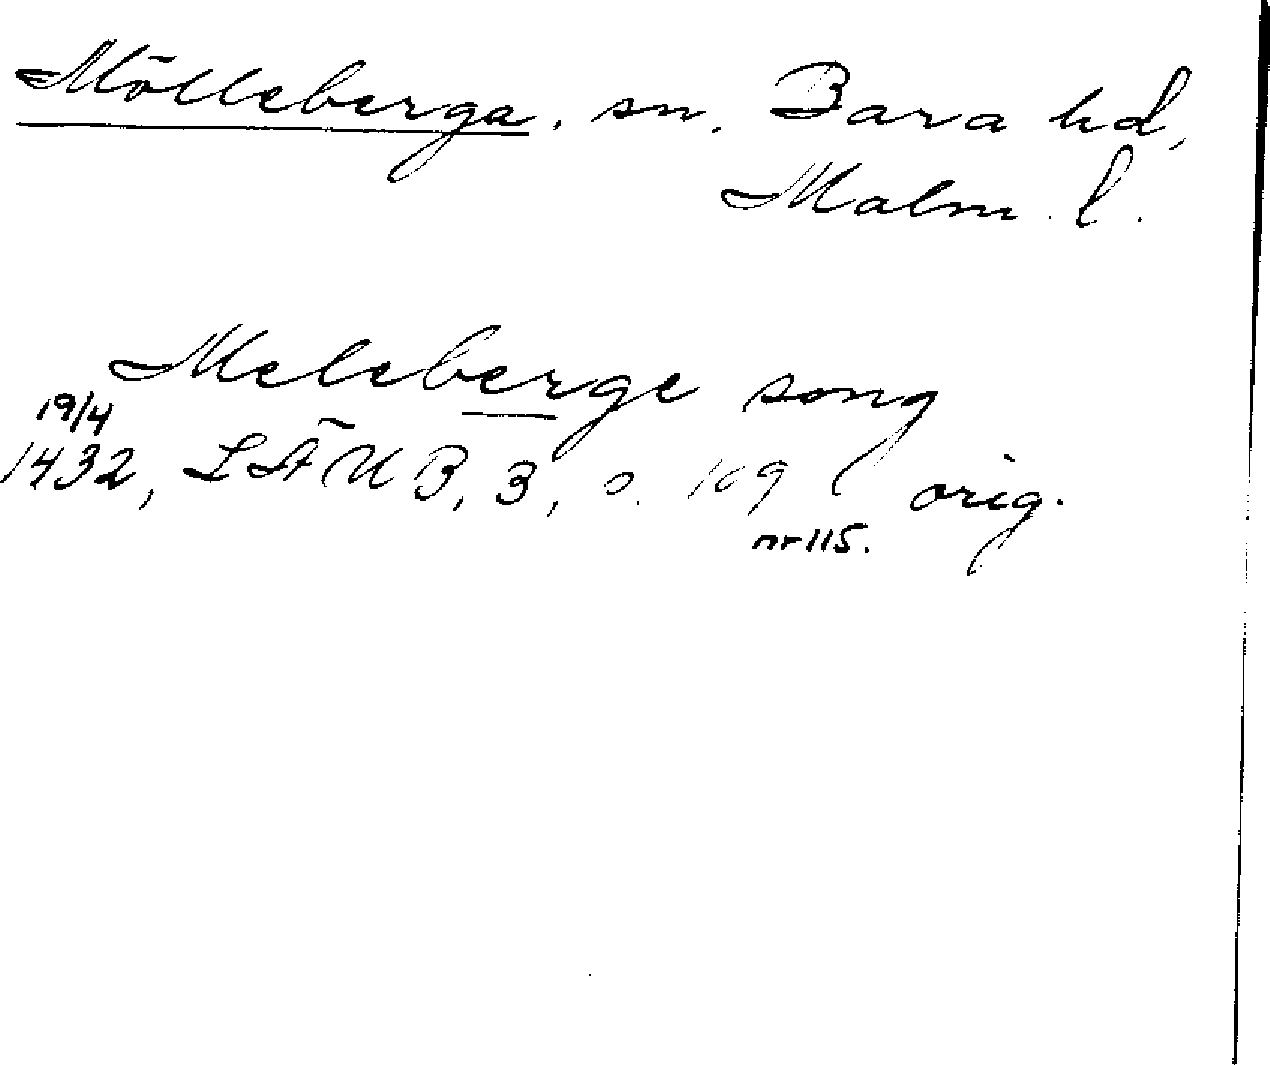 Mölleberga, sn, Bara hd,
Malm. l.
Meleberge song
19/4
1432, LÄUB, 3, s. 109 orig.
nr 115.